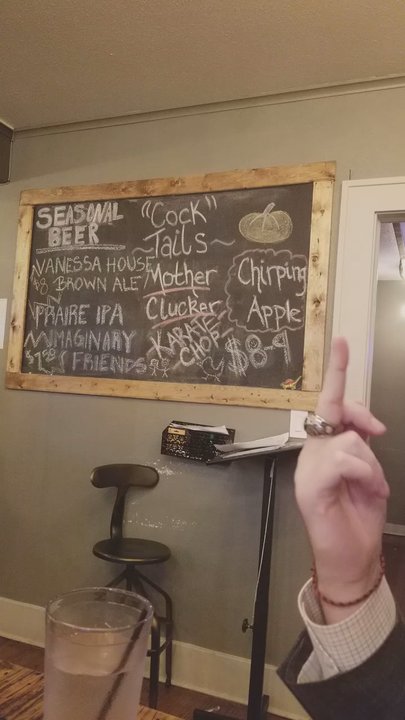 SEASONAL
BEER
VANESSA HOUSE
$8 BROWN ALE
PRAIRE IPA
IMAGINARY
FRIENDS
"Cock"
Tails~
Mother
Clucker
KARATE
CHOP
Chirping
Apple
$8-9